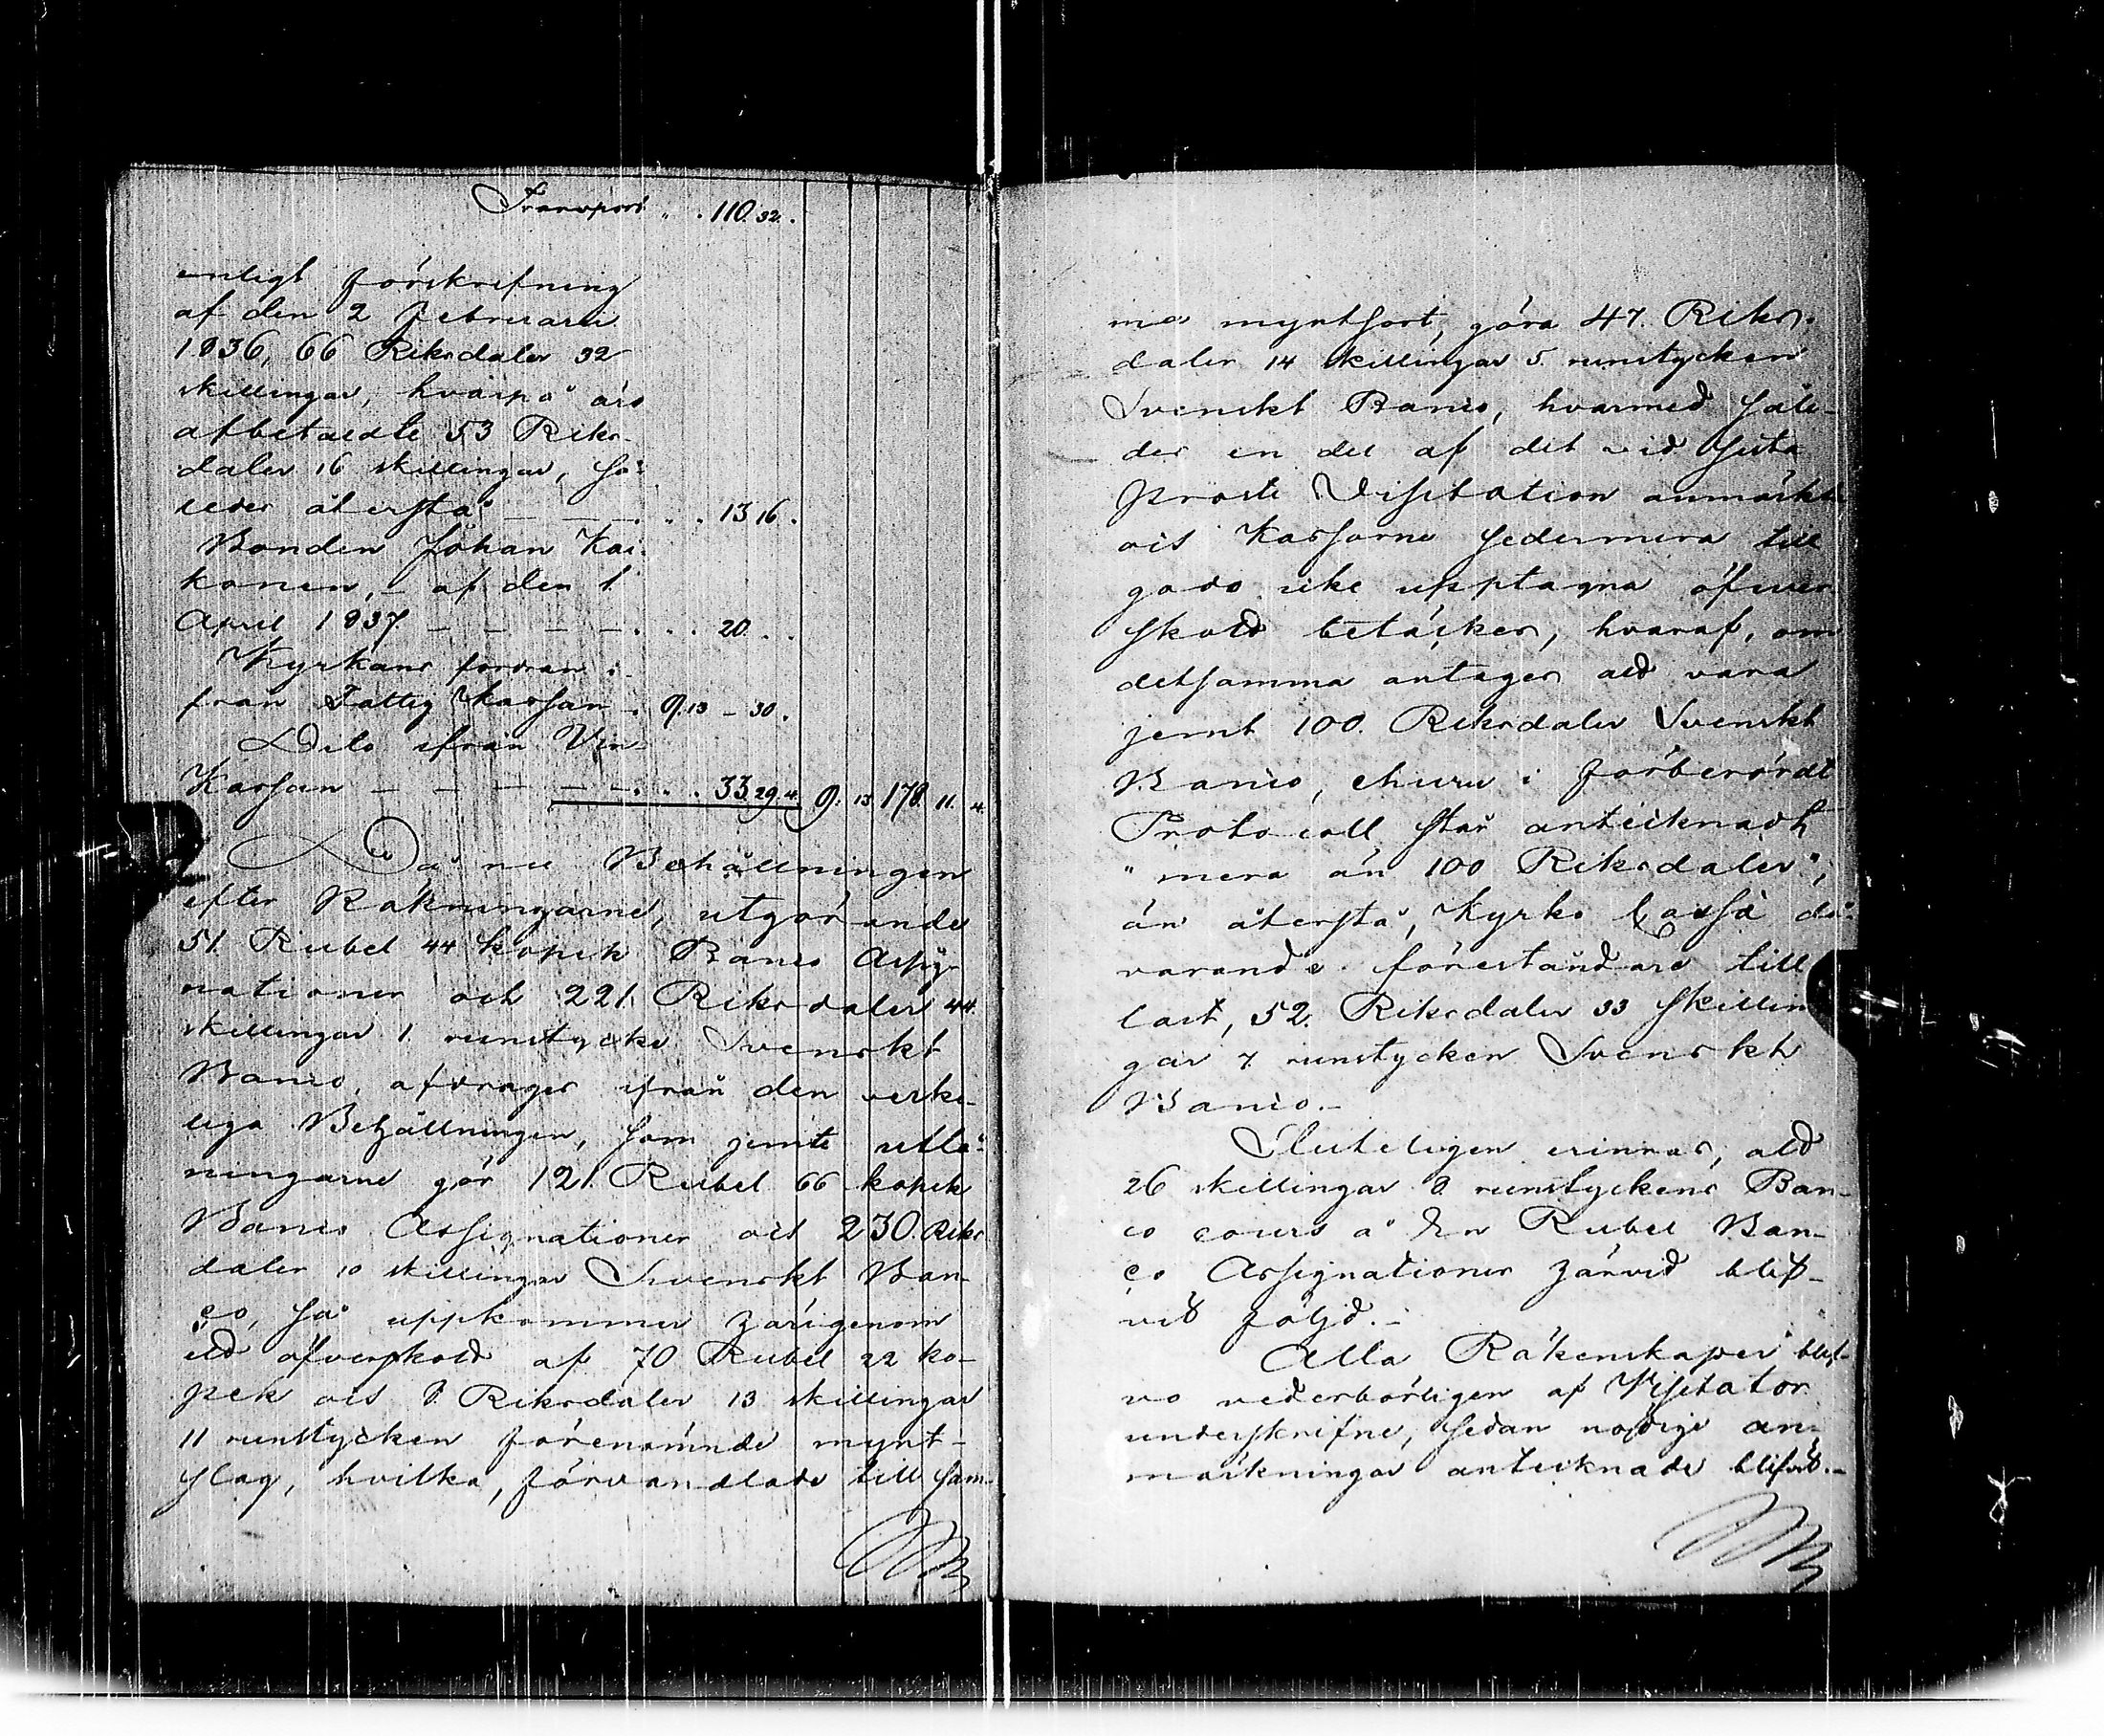 Transport " . 110. 32.
enligt förskrifning
af den 2 Februarii
1836, 66 Riksdaler 32
skillingar, hvarpå äro
afbetaldte 53 Riks-
daler 16 skillingar, så-
ledes återstå — — . . . 13 16.
Bonden Johan Kai-
konen, — af den 1
April 1837 — — — — . . . 20. . .
Kyrkans fordran i
från Fattig Kassan . 9. 13 — 30.
Dito ifrån Vin-
Kassan — — — — — . . . 33. 29. 4. 9. 13 178. 11. 4.
Då nu Behållningen
efter Räkningarne, utgörande
51. Rubel 44 kopek Banco Assig-
nationer och 221. Riksdaler 44.
skillingar 1. runstycke Svenskt
Banco, afdrages ifrån den verke-
liga Behållningen, som jemte utlå-
ningarne gör 121. Rubel 66 kopek
Banco Assignationer och 230. Riks
daler 10 skillingar Svenskt Ban-
co, så uppkommer härigenom
ett öfverskott af 70 Rubel 22 ko-
pek och 8. Riksdaler 13 skillingar
11 runstycken förenämnde mynt-
slag, hvilka, förvandlade till sam-
ma myntsort, göra 47. Riks-
daler 14 skillingar 5. runstycken
Svenskt Banco, hvarmed såle-
des en del af det vid sista
Prosts Visitation anmärkte
och Kassorne sedermera till
godo icke upptagna öfver
skott betäckes, hvaraf, om
detsamma antages att vara
jemt 100. Riksdaler Svenskt
Banco, ehuru i förberördt
Protocoll står antecknadt
"mera än 100 Riksdaler",
än återstå, Kyrko Cassa då-
varande föreståndare till
last, 52. Riksdaler 33 skillin
gar 7. runstycken Svenskt
Banco.—
Sluteligen erinras, att
26 skillingar 8. runstyckens Ban-
co cours å En Rubel Ban-
co Assignationer härvid blif-
vit följd.—
Alla Räkenskaper blef-
vo vederbörligen af Visitator
underskrifne, sedan nödige an-
märkningar antecknade blifvit.—